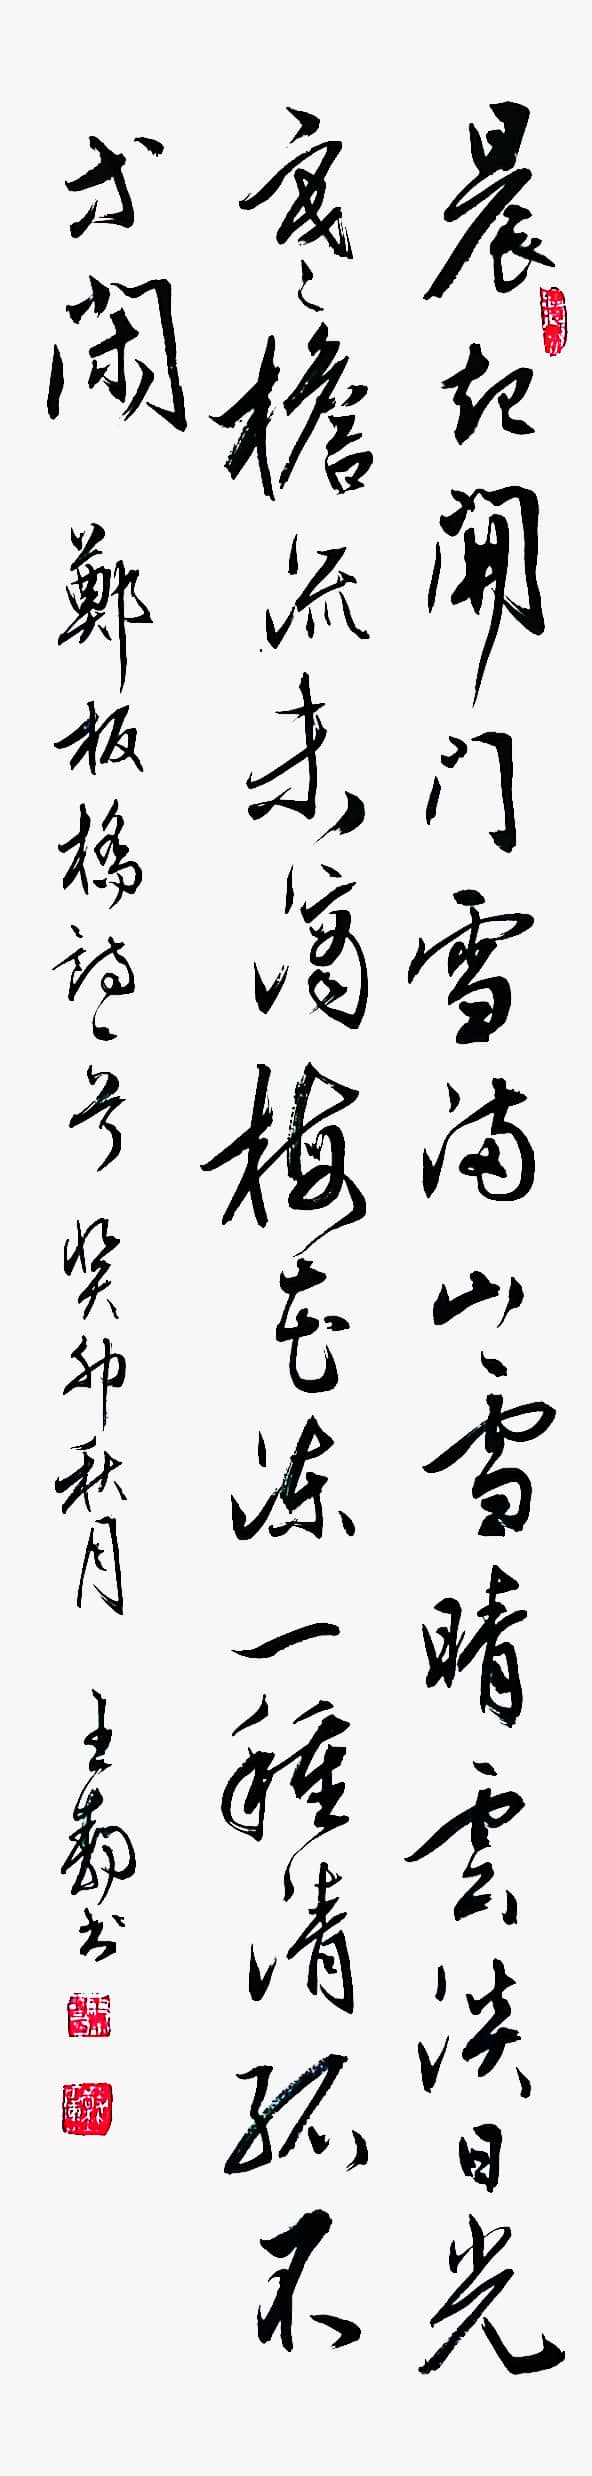 晨起開門雪滿山雪晴雲淡日光
寒檐流未滴梅花凍一種清孤不
等閑 鄭板橋詩一首 癸卯秋月 王靜书